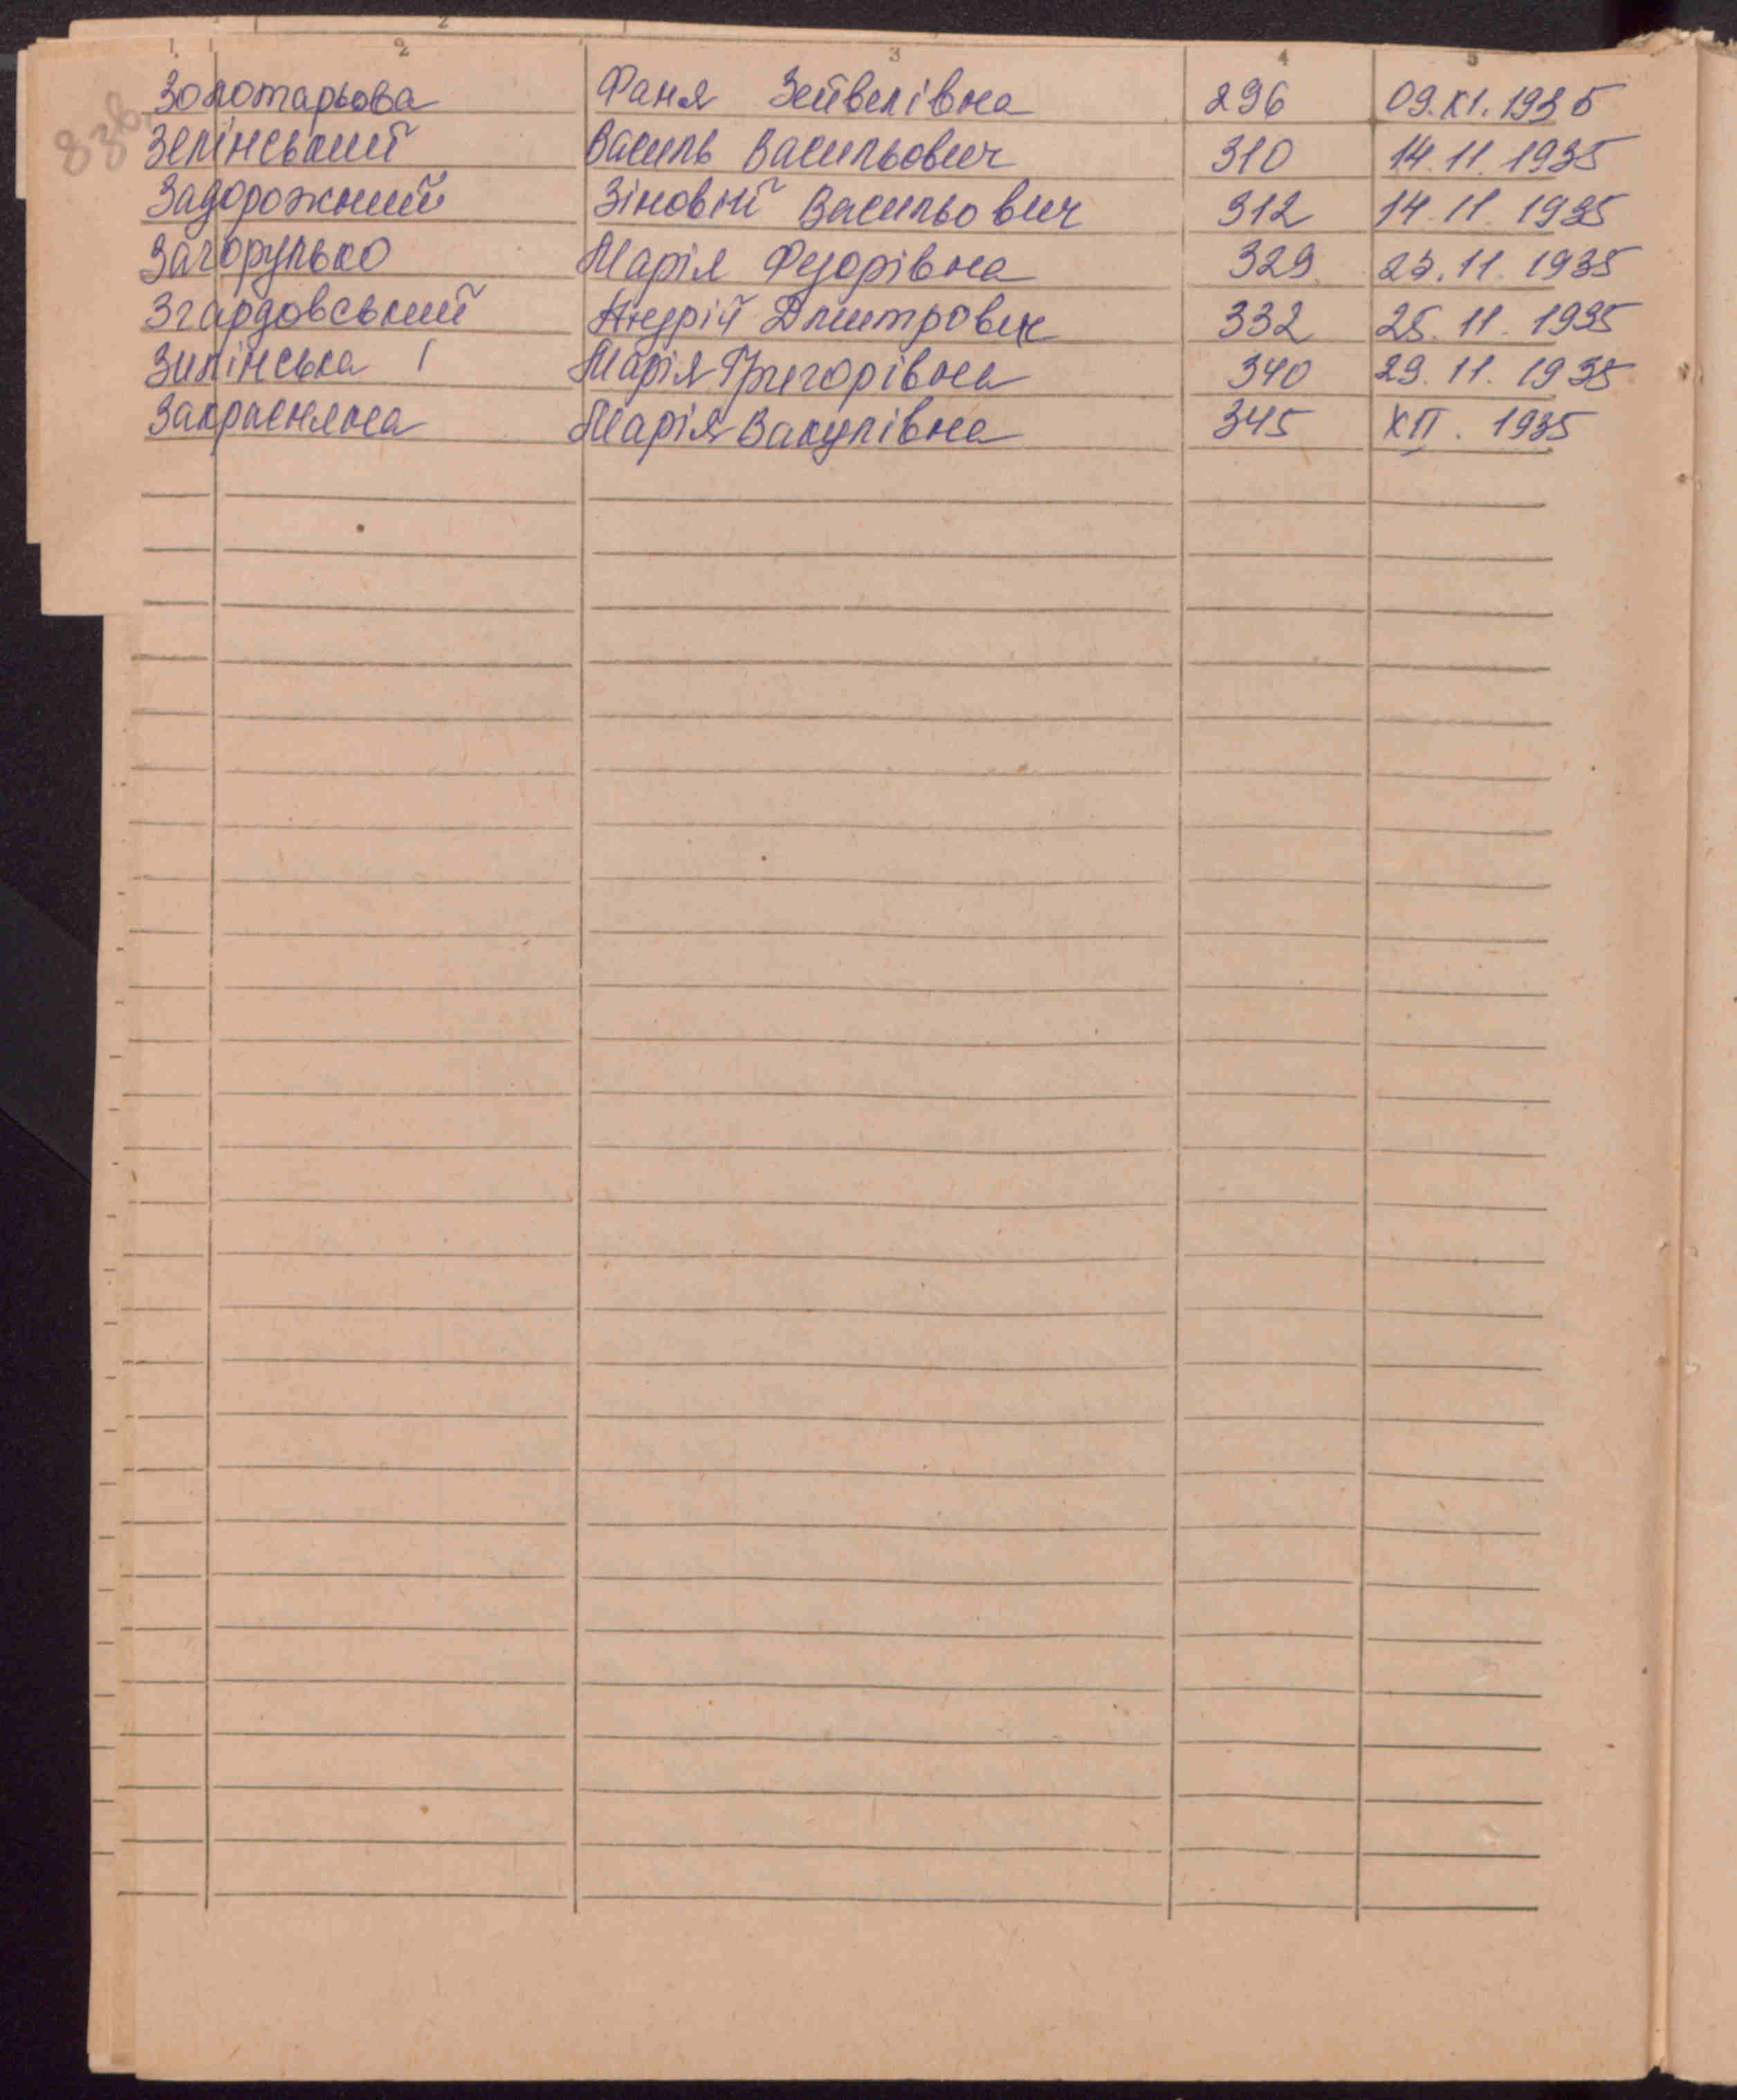 2
1 2 3 4 5
Золотарьова Фаня Зейвелівна 296 09.XI.1935
Зелінський Василь Васильович 310 14.11.1935
Задорожний Зіновій Васильович 312 14.11.1935
Загорулько Марія Федорівна 329 23.11.1935
Згардовський Андрій Дмитрович 332 25.11.1935
Зилінська Марія Григорівна 340 29.11.1935
Марія Вакулівна 345 XII.1935